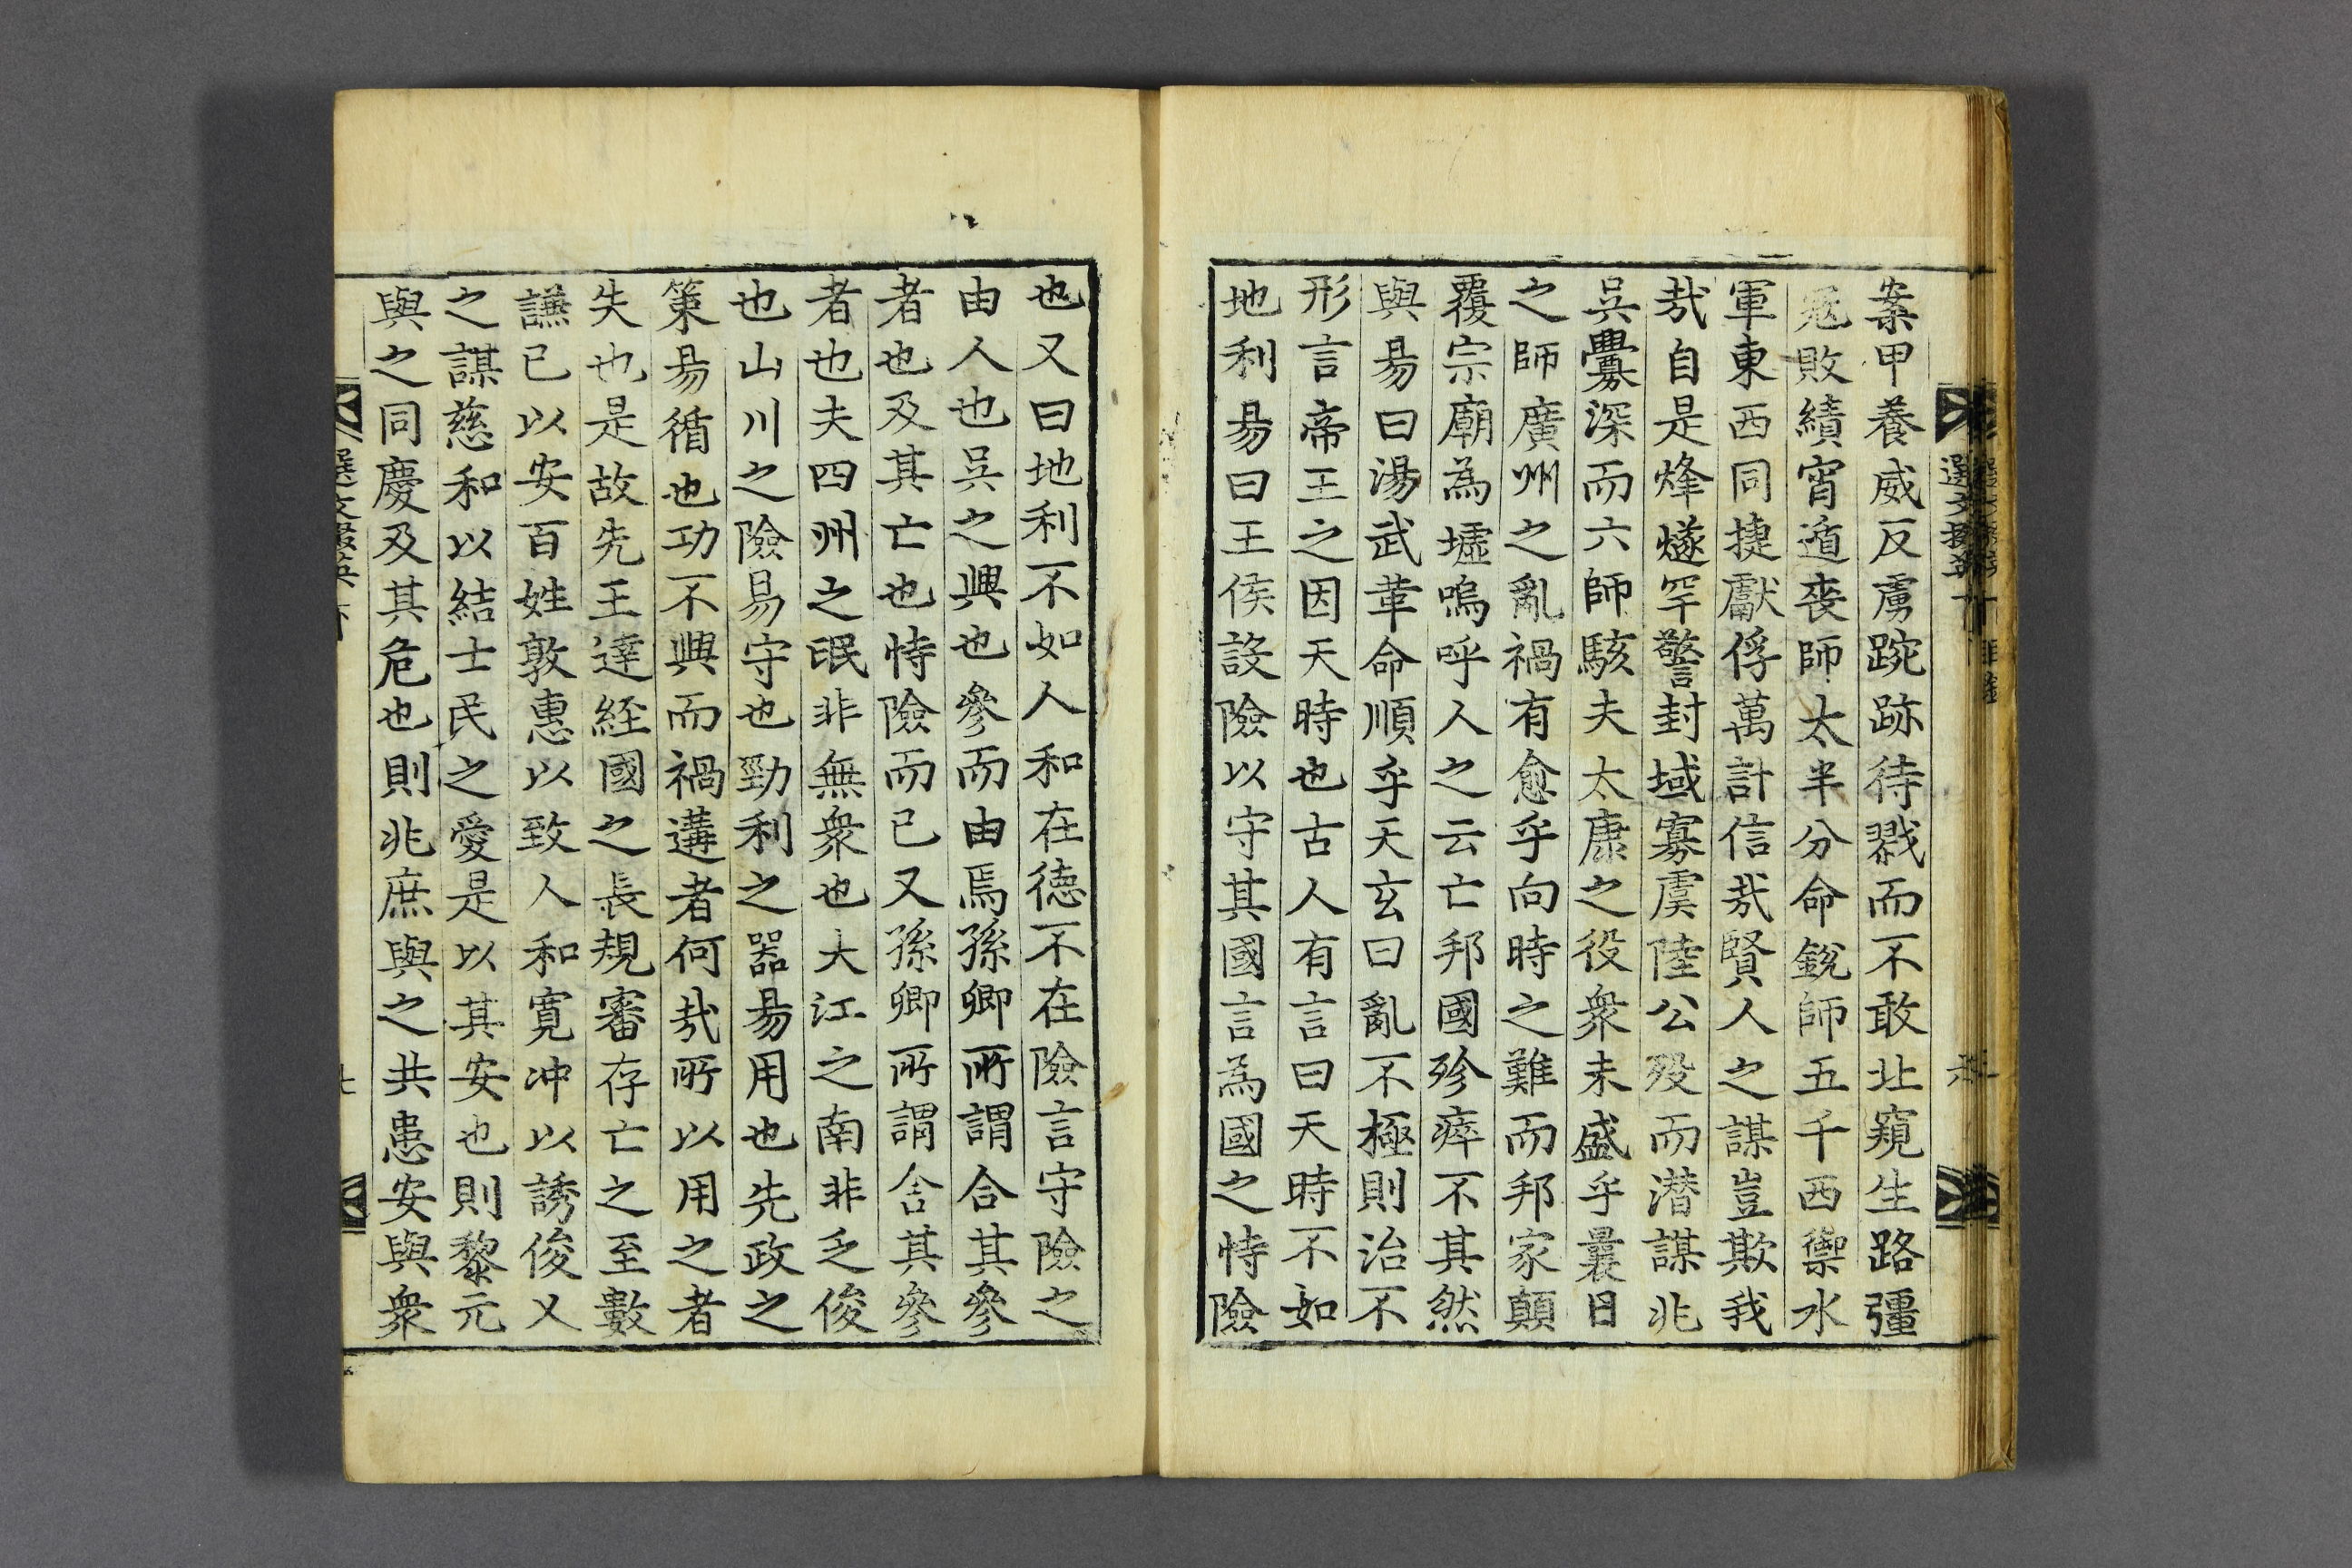 案甲養威反虜踠跡待戮而不敢北窺生路彊
寇敗績宵遁喪師太半分命銳師五千西禦水
軍東西同捷獻俘萬計信㦲賢人之謀豈欺我
㦲自是烽燧罕警封域寡虞陸公歿而潛謀兆
吳釁深而六師駭夫太康之役衆未盛乎曩日
之師廣州之亂禍有愈乎向時之難而邦家顛
覆宗廟為墟嗚呼人之云亡邦國殄瘁不其然
與易曰湯武革命順乎天玄曰亂不極則治不
形言帝王之因天時也古人有言曰天時不如
地利易曰王侯設險以守其國言為國之恃險
也又曰地利不如人和在德不在險言守險之
由人也吳之興也參而由焉孫卿所謂合其參
者也及其亡也恃險而已又孫卿所謂舍其參
者也夫四州之氓非無衆也大江之南非乏俊
也山川之險易守也勁利之器易用也先政之
策易循也功不興而禍遘者何㦲所以用之者
失也是故先王達經國之長規審存亡之至數
謙已以安百姓敦惠以致人和寬冲以誘俊乂
之謀慈和以結士民之愛是以其安也則黎元
與之同慶及其危也則兆庶與之共患安與衆